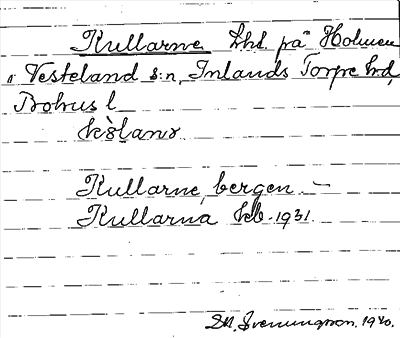 Kullarne Lht. på Holmen
i Vesteland s:n, Inlands Torpe hd,
Bohus l
Kullarne, bergen –
Kullarna Ekb. 1931.
1940.